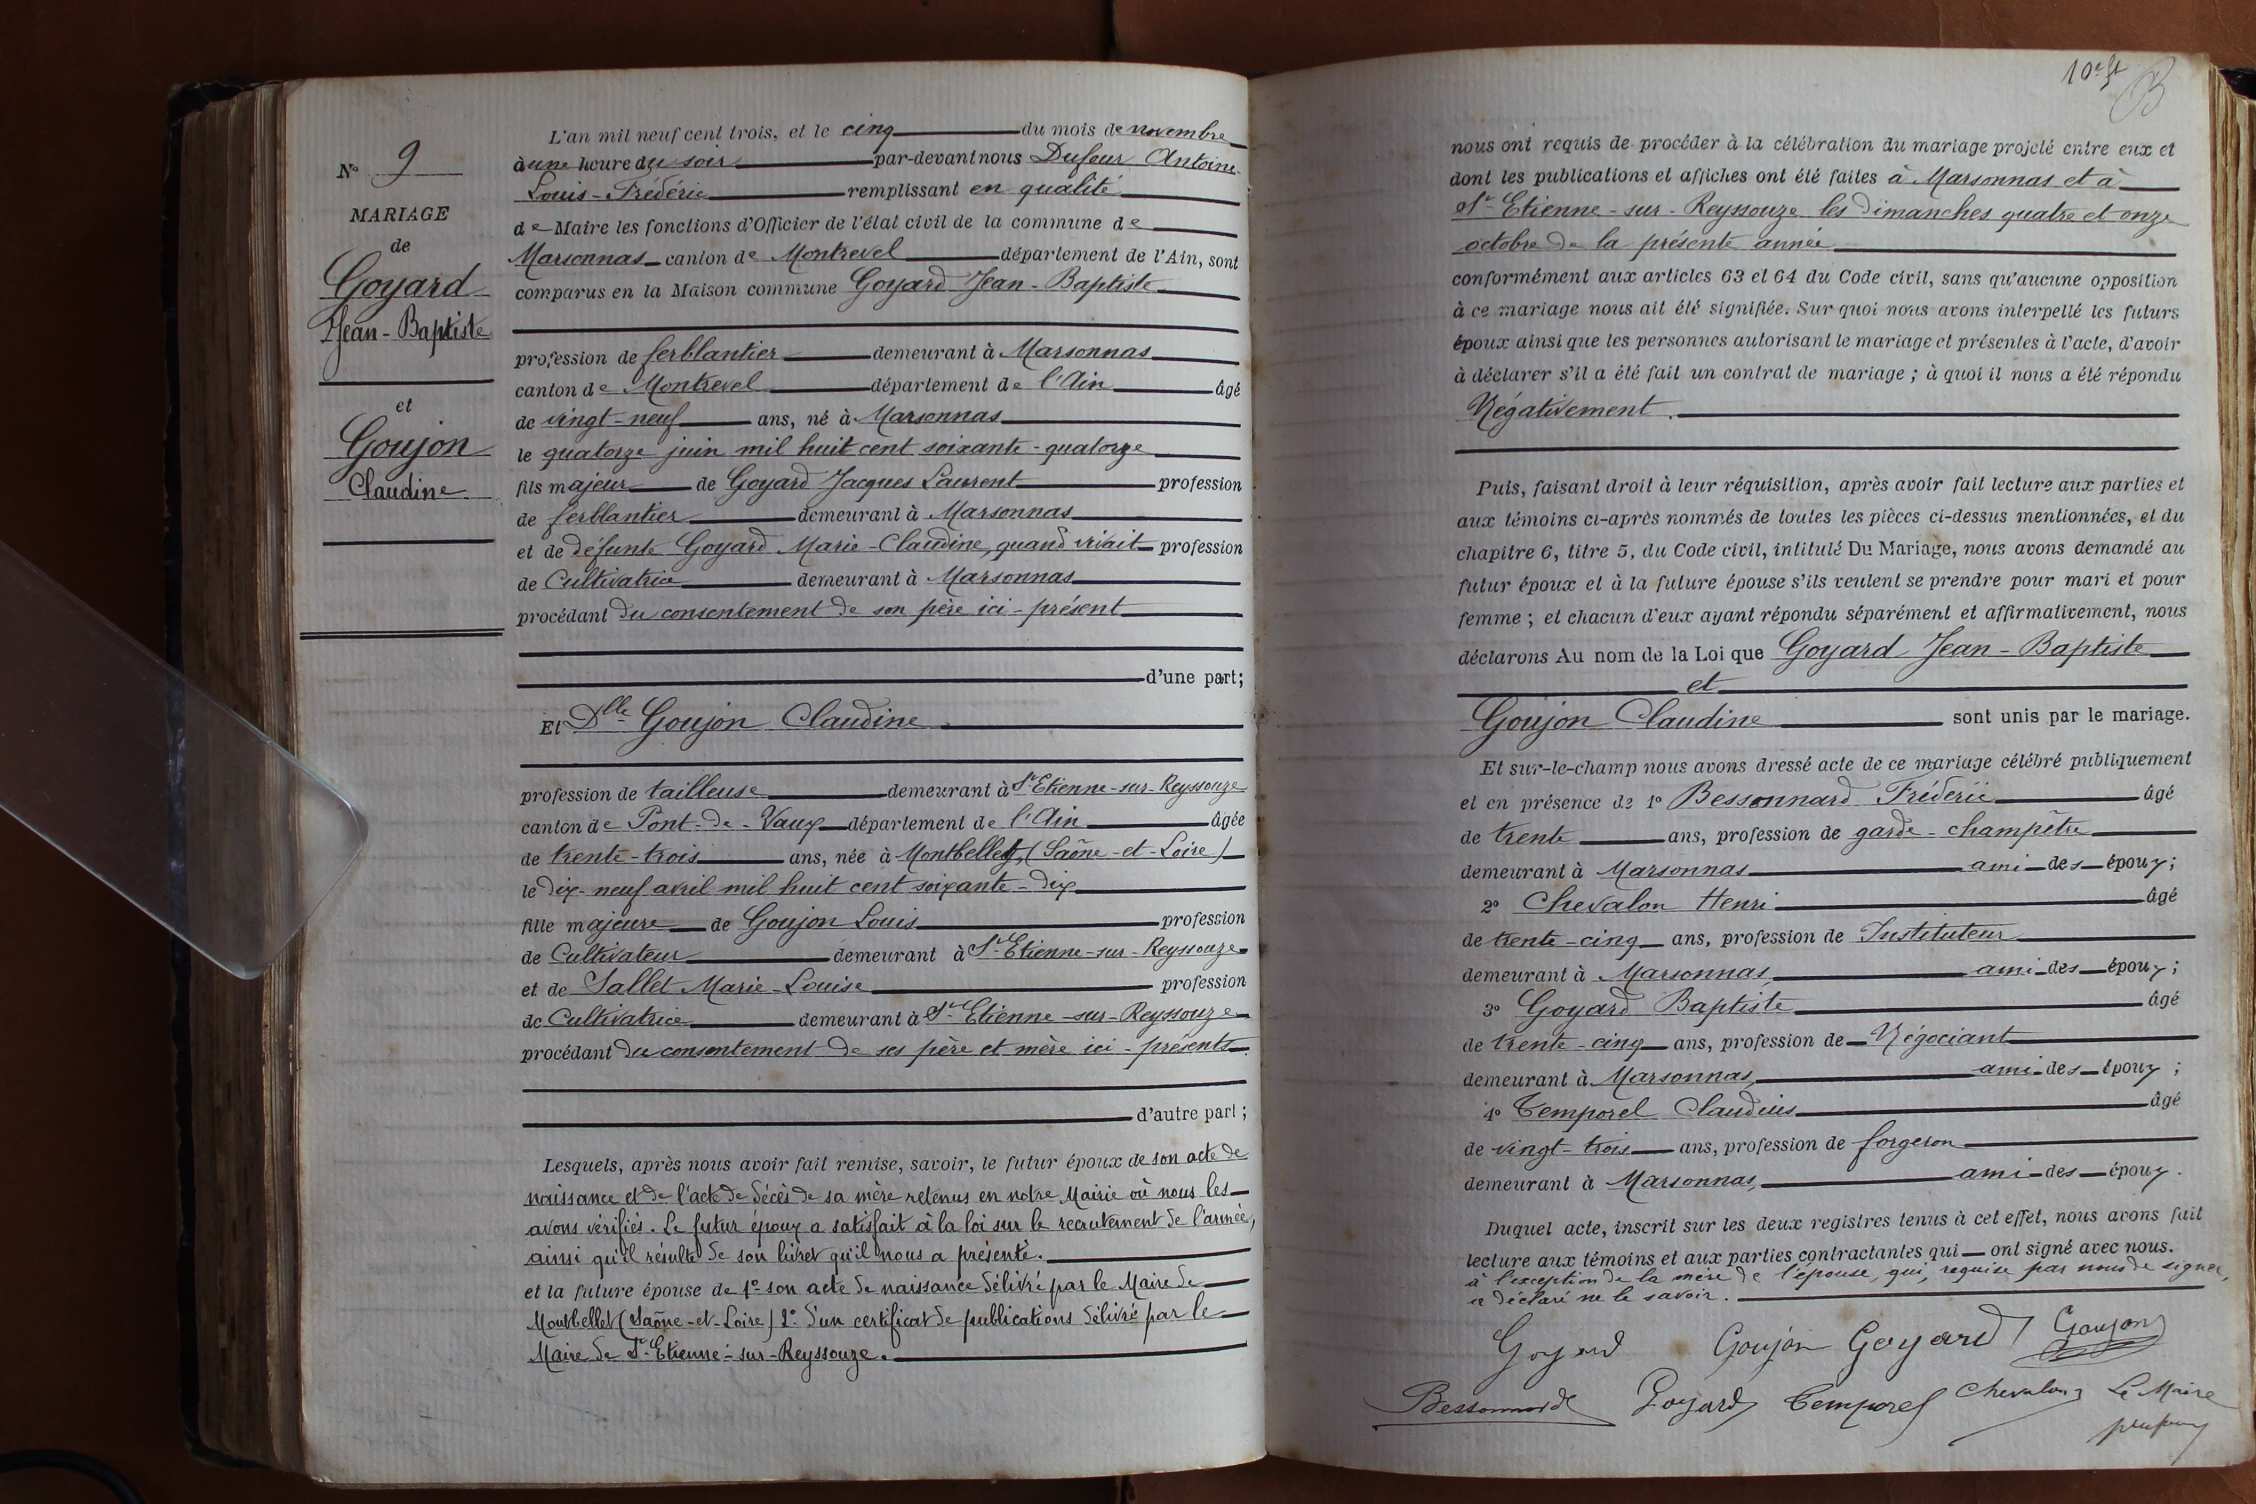 N° 9
MARIAGE
de
Goyard
Jean-Baptiste
et
Goujon
Claudine
L'an mil neuf cent trois, et le cinq du mois de novembre
à une heure du soir par-devant nous Dufour Antoine
Louis-Frédéric remplissant en qualité
de Maire les fonctions d'Officier de l'état civil de la commune de
Marsonnas canton de Montrevel département de l'Ain, sont
comparus en la Maison commune Goyard Jean-Baptiste
profession de ferblantier demeurant à Marsonnas
canton de Montrevel département de l'Ain âgé
de vingt-neuf ans, né à Marsonnas
le quatorze juin mil huit cent soixante-quatorze
fils majeur de Goyard Jacques Laurent profession
de ferblantier demeurant à Marsonnas
et de défunte Goyard Marie-Claudine, quand vivait profession
de Cultivatrice demeurant à Marsonnas
procédant du consentement de son père ici-présent
d'une part;
Et Dlle Goujon Claudine
profession de tailleuse demeurant à St Etienne-sur-Reyssouze
canton de Pont-de-Vaux département de l'Ain âgée
de trente-trois ans, née à Montbellet, (Saône-et-Loire)
le dix-neuf avril mil huit cent soixante-dix
fille majeure de Goujon Louis profession
de Cultivateur demeurant à St Etienne-sur-Reyssouze
et de Sallet Marie-Louise profession
de Cultivatrice demeurant à St Etienne-sur-Reyssouze
procédant du consentement de ses père et mère ici-présents
d'autre part;
Lesquels, après nous avoir fait remise, savoir, le futur époux de son acte de
naissance et de l'acte de décès de sa mère retenus en notre Mairie où nous les
avons vérifiés. Le futur époux a satisfait à la loi sur le recrutement de l'armée,
ainsi qu'il résulte de son livret qu'il nous a présenté.
et la future épouse de 1° son acte de naissance délivré par le Maire de
Montbellet (Saône-et-Loire) 2° d'un certificat de publications délivré par le
Maire de St Etienne-sur-Reyssouze.
10e ft
B
nous ont requis de procéder à la célébration du mariage projeté entre eux et
dont les publications et affiches ont été faites à Marsonnas et à
St Etienne-sur-Reyssouze les dimanches quatre et onze
octobre de la présente année
conformément aux articles 63 et 64 du Code civil, sans qu'aucune opposition
à ce mariage nous ait été signifiée. Sur quoi nous avons interpellé les futurs
époux ainsi que les personnes autorisant le mariage et présentes à l'acte, d'avoir
à déclarer s'il a été fait un contrat de mariage ; à quoi il nous a été répondu
Négativement.
Puis, faisant droit à leur réquisition, après avoir fait lecture aux parties et
aux témoins ci-après nommés de toutes les pièces ci-dessus mentionnées, et du
chapitre 6, titre 5, du Code civil, intitulé Du Mariage, nous avons demandé au
futur époux et à la future épouse s'ils veulent se prendre pour mari et pour
femme ; et chacun d'eux ayant répondu séparément et affirmativement, nous
déclarons Au nom de la Loi que Goyard Jean-Baptiste
et
Goujon Claudine sont unis par le mariage.
Et sur-le-champ nous avons dressé acte de ce mariage célébré publiquement
et en présence de 1° Bessonnard Frédéric âgé
de trente ans, profession de garde-champêtre
demeurant à Marsonnas ami des époux;
2° Chevalon Henri âgé
de trente-cinq ans, profession de Instituteur
demeurant à Marsonnas, ami des époux;
3° Goyard Baptiste âgé
de trente-cinq ans, profession de Négociant
demeurant à Marsonnas, ami des époux;
4° Temporel Claudius âgé
de vingt-trois ans, profession de forgeron
demeurant à Marsonnas, ami des époux.
Duquel acte, inscrit sur les deux registres tenus à cet effet, nous avons fait
lecture aux témoins et aux parties contractantes qui ont signé avec nous.
à l'exception de la mère de l'épouse, qui, requise par nous de signer,
a déclaré ne le savoir.
Goyard Goujon Goyard Goujon
Bessonnard Goyard Temporel Chevalon Le Maire
Dufour